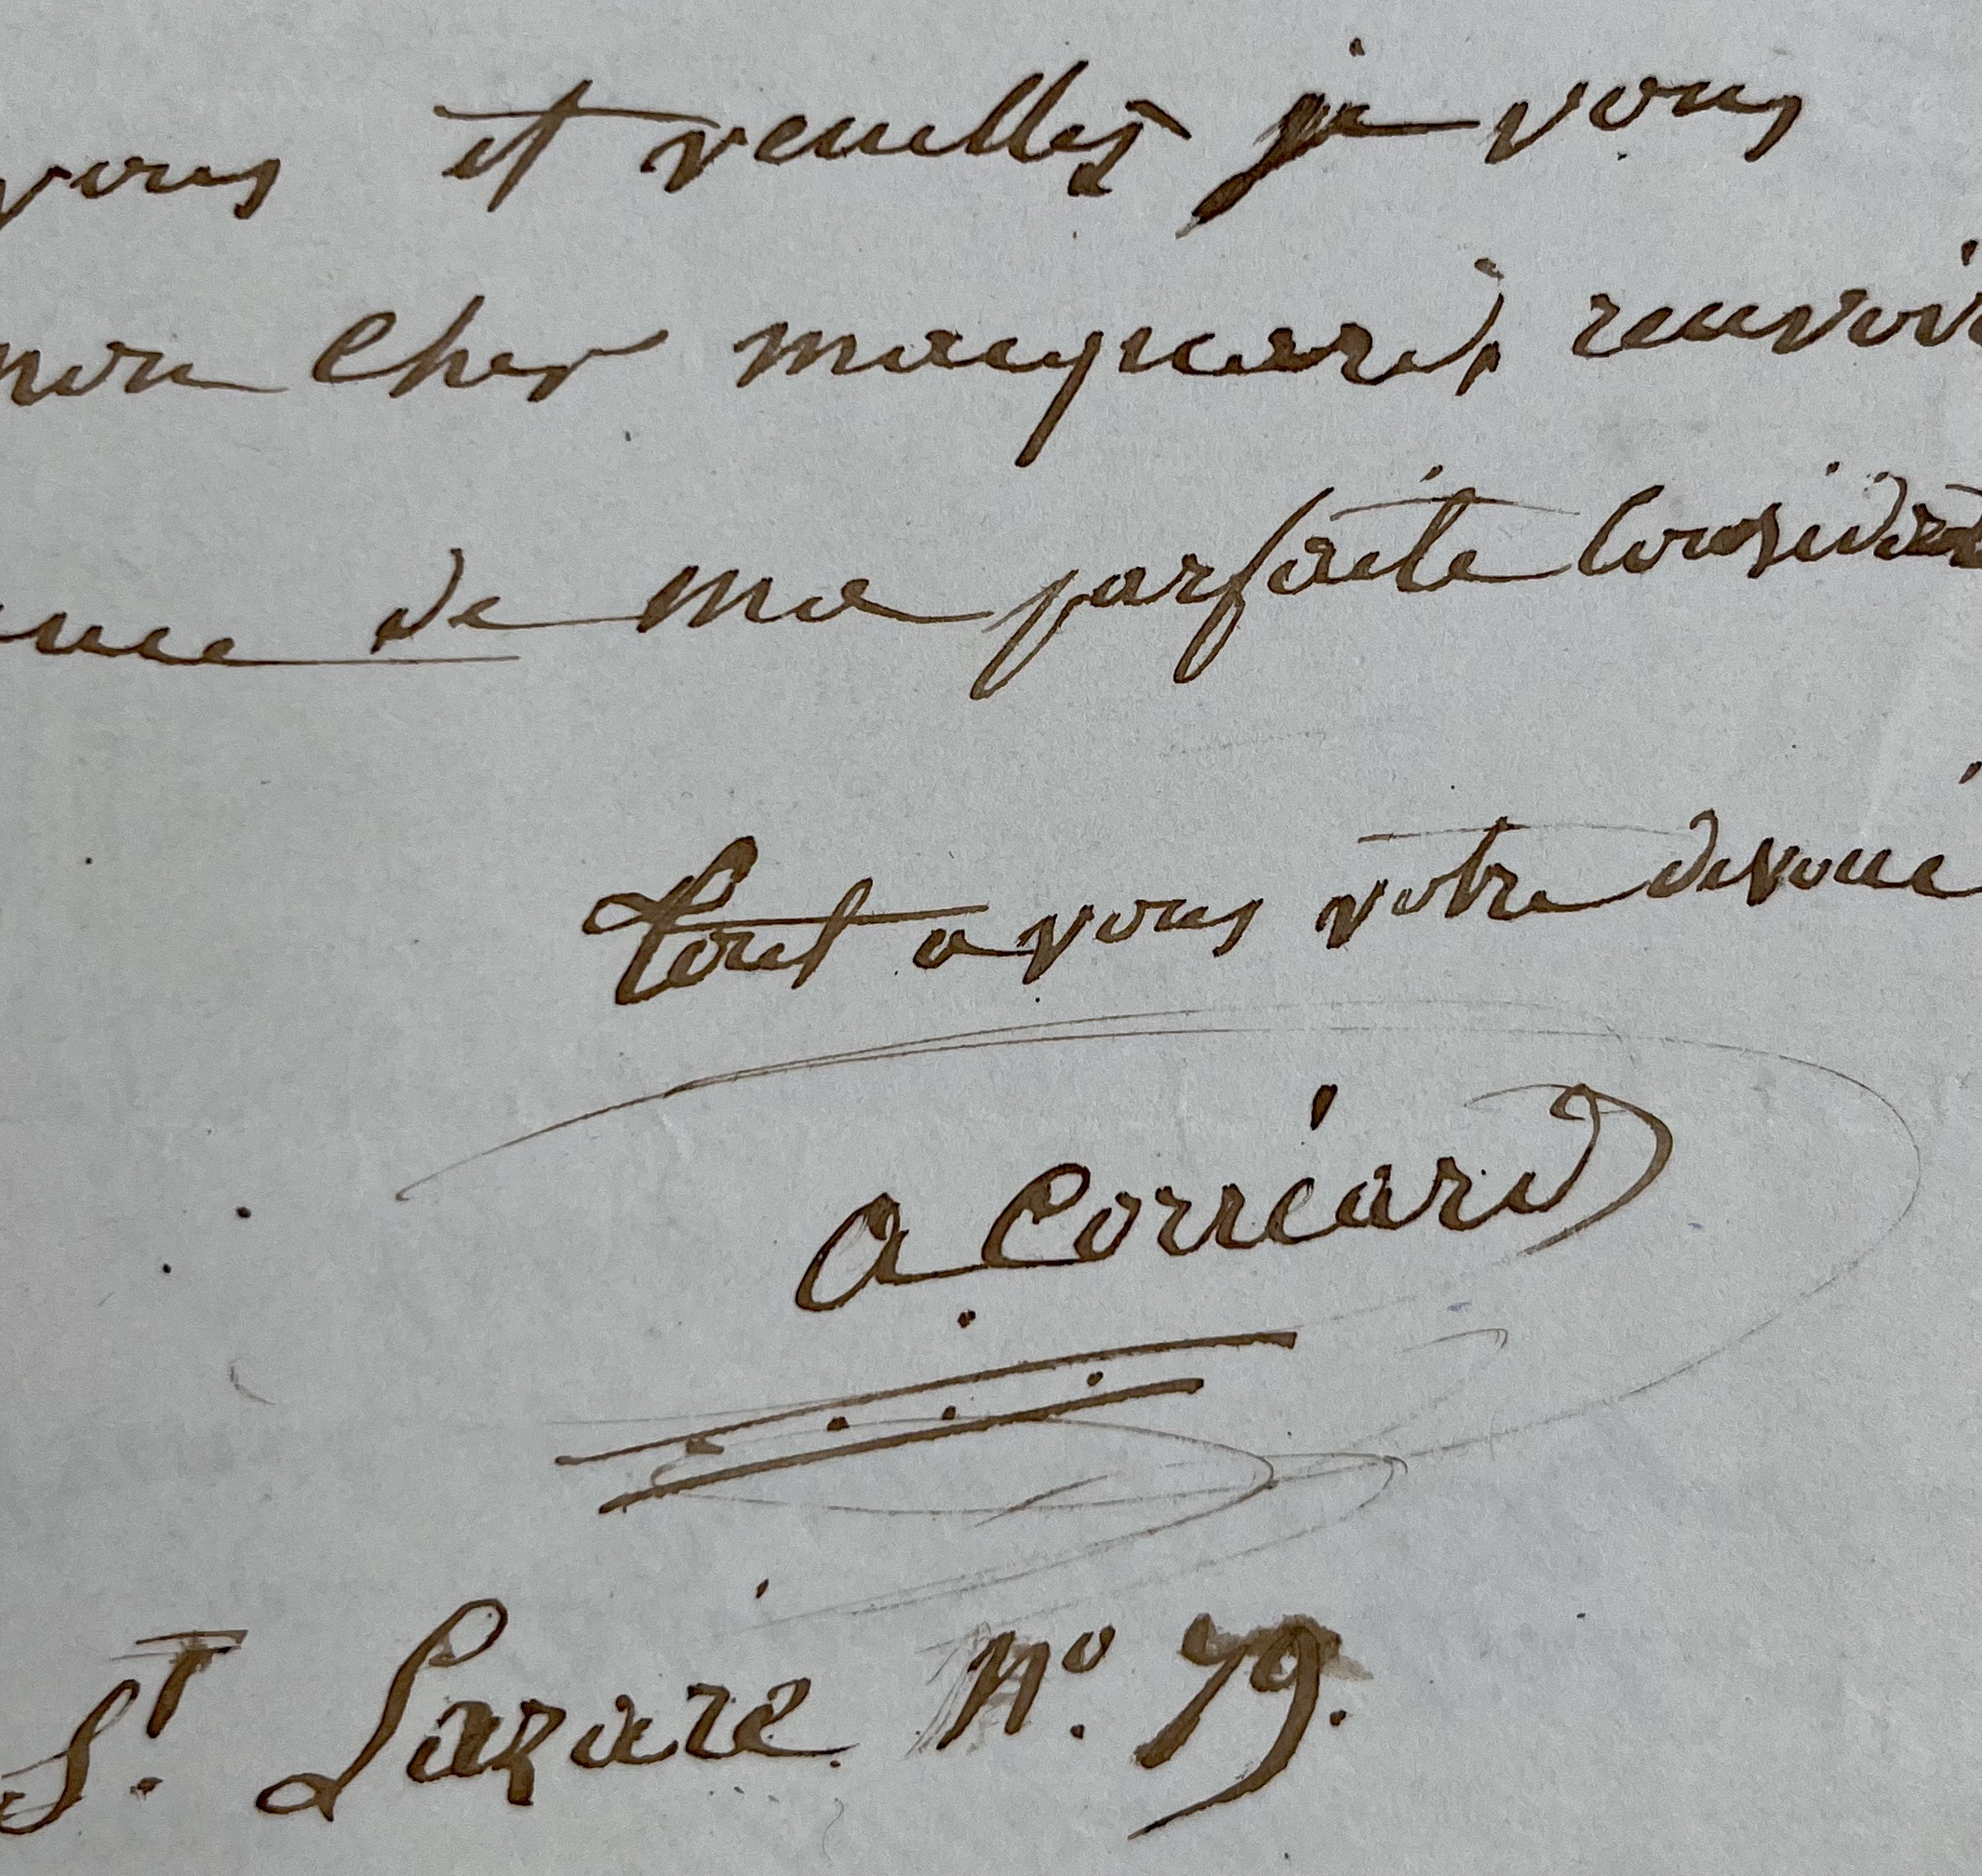 vous et veuillez je vous
mon cher macquard, recevoir
de ma parfaite considérat
tout a vous votre devoué
A Corréard
St. Lazare No. 79.